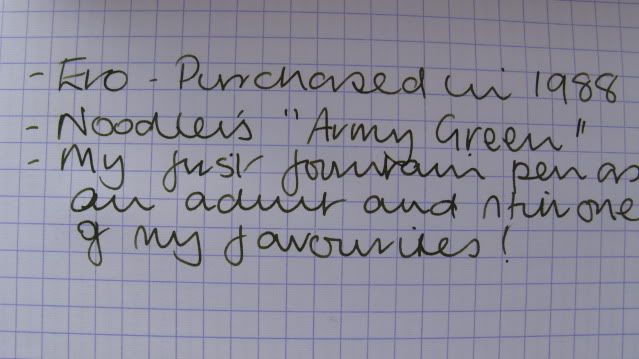 - Evo - Purchased in 1988
- Noodler's "Army Green"
- My first fountain pen as
an adult and still one
of my favourites!